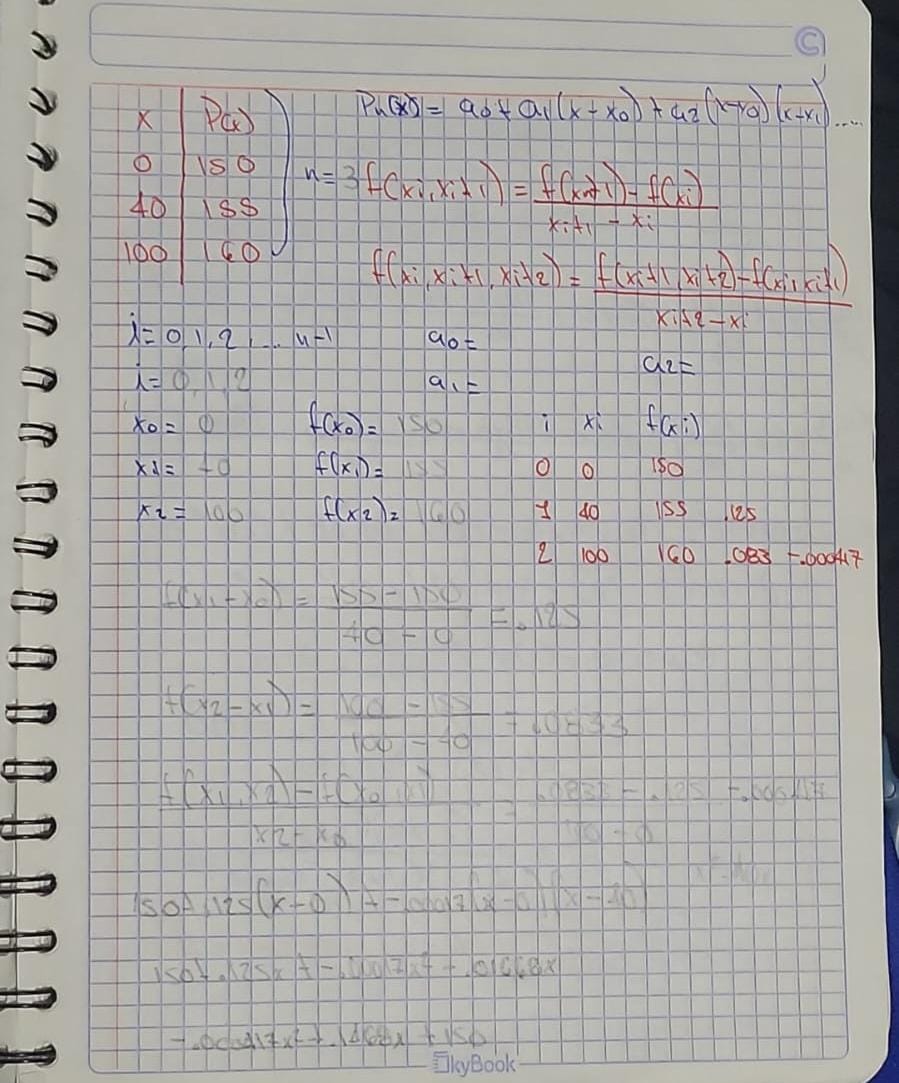 C
x | P(x)
0 | 150
40 | 155
100 | 160
Pn(x) = a0 + a1(x - x0) + a2(x-x0)(x-x1)....
n=3 f(xi, xi+1) = f(xi+1) - f(xi) / xi+1 - xi
f(xi, xi+1, xi+2) = f(xi+1, xi+2) - f(xi, xi+1) / xi+2 - xi
i=0,1,2,... n-1 a0=
a2=
i=0,1,2 a1=
x0= 0 f(x0)= 150 i xi f(xi)
x1= 40 f(x1)= 155 0 0 150
x2= 100 f(x2)= 160 1 40 155 .125
2 100 160 .083 -.000417
f(x1-x0) = 155-150 / 40-0 = .125
f(x2-x1) = 160-155 / 100-40 = .0833
f(x1,x2)-f(x0,x1) / x2-x0 = .0833-.125 -.000417
150+.125(x-0)+-.000417(x-0)(x-40)
150+.125x+-.000417x²+.01668x
-.000417x²+.1468x+150
SkyBook